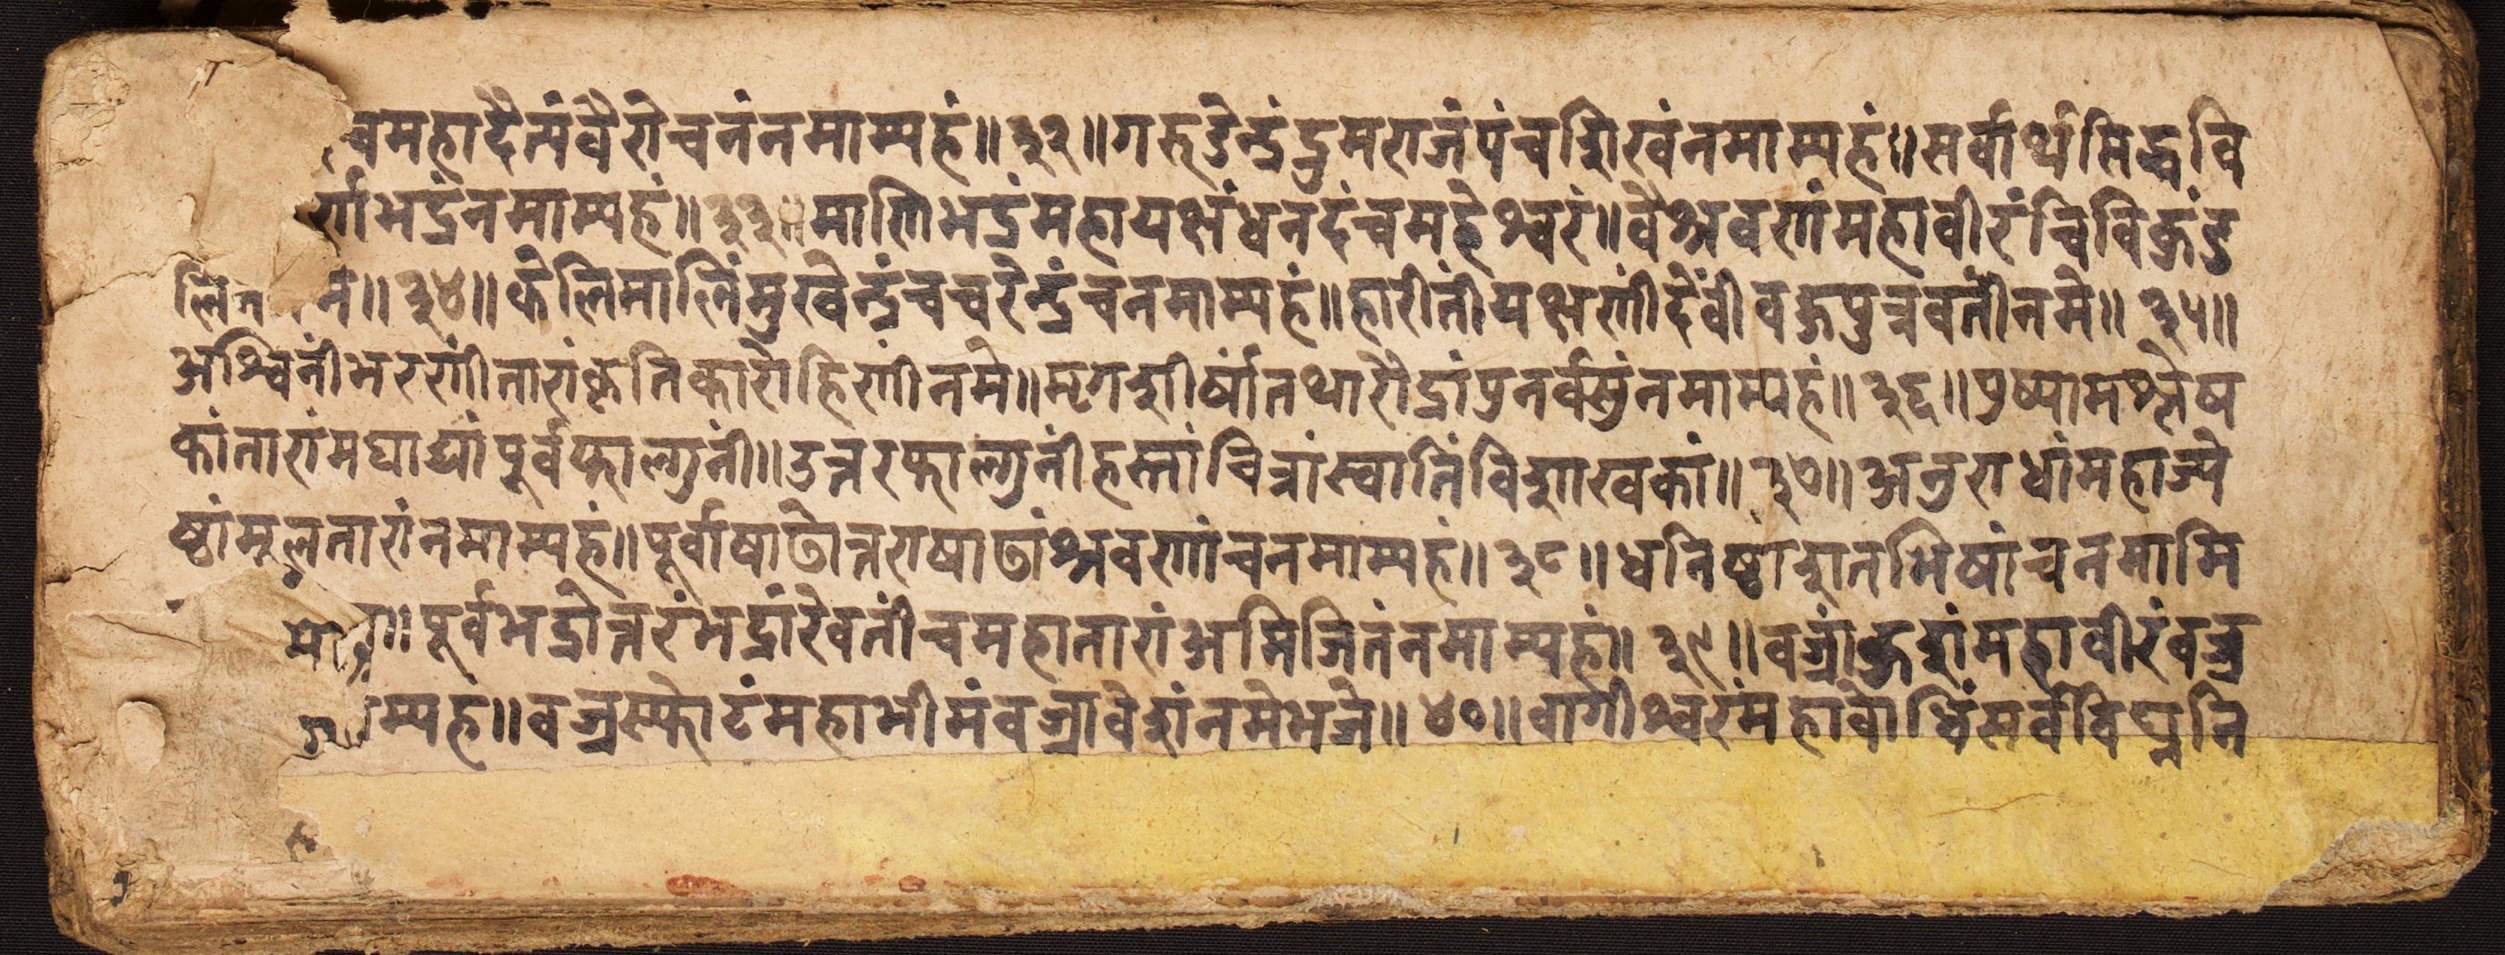 चमहादैत्यंवैरोचनंनमाम्यहं॥३२॥गरुडेन्द्रंद्रुमराजंपंचशिखंनमाम्यहं॥सर्वार्थसिद्धवि
र्णभद्रंनमाम्यहं॥३३॥माणिभद्रंमहायक्षंधनदंचमहेश्वरं॥वैश्रवणंमहावीरंचिविकुंड
लि नमे॥३४॥केलिमालिंमुखेन्द्रंचचरेन्द्रंचनमाम्यहं॥हारीतींयक्षणींदेवींवहुपुत्रवतींनमे॥३५॥
अश्विनींभरणींतारांकृतिकारोहिणींनमे॥मृगशीर्षांतथारौद्रांपुनर्वसुंनमाम्यहं॥३६॥पुष्यामश्लेष
कांतारांमघाद्यांपूर्वफाल्गुनीं॥उत्तरफाल्गुनींहस्तांचित्रांस्वातिंविशाखकां॥३७॥अनुराधांमहाज्ये
ष्ठांमूलतारांनमाम्यहं॥पूर्वाषाढोत्तराषाढांश्रवणांचनमाम्यहं॥३८॥धनिष्ठांशतभिषांचनमामि
पूर्वभद्रोत्तरंभद्रांरेवतींचमहातारांअभिजितंनमाम्यहां॥३९॥वज्रांकुशंमहावीरंवज्र
म्यहं॥वज्रस्फोटंमहाभीमंवज्रावेशंनमेभजे॥४०॥वागीश्वरंमहावोधिंसर्वविघ्ननि